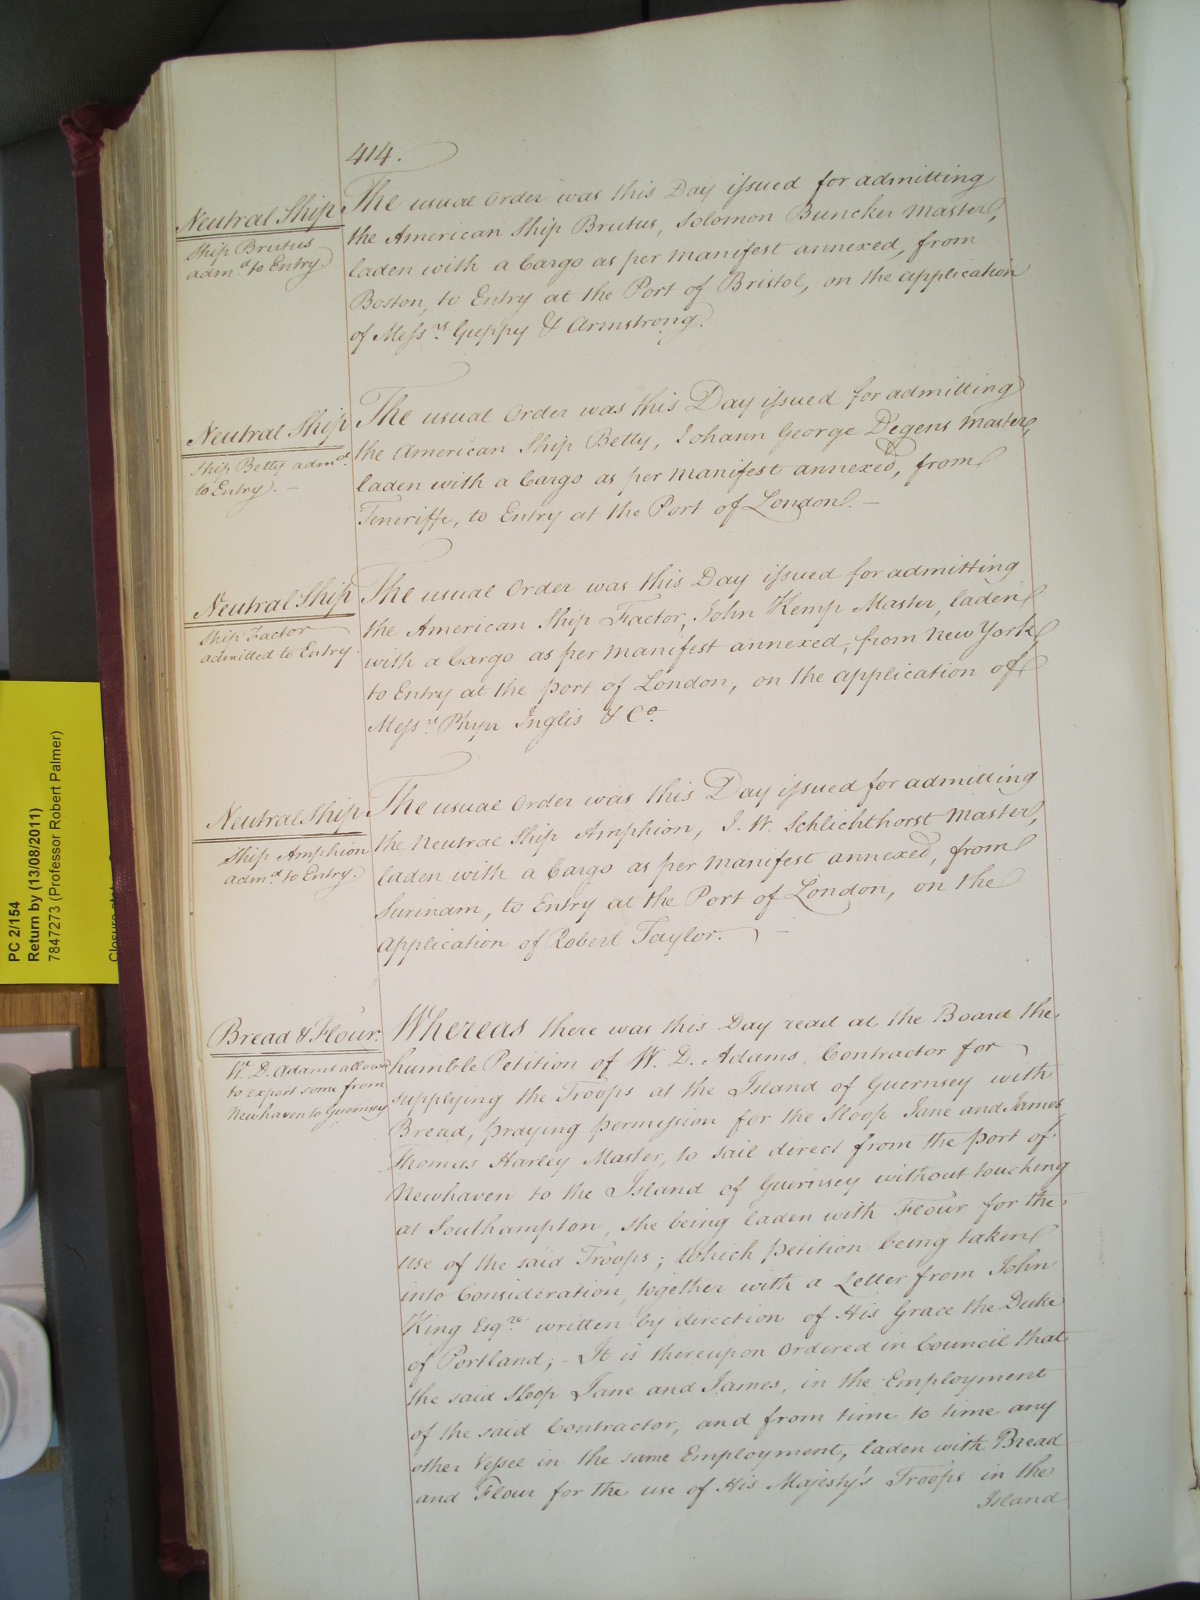 414.
Neutral Ship
Ship Brutus
adm.d to Entry
The usual Order was this Day issued for admitting
the American Ship Brutus, Solomon Buncker Master,
laden with a Cargo as per Manifest annexed, from
Boston, to Entry at the Port of Bristol, on the application
of Mess.rs Guppy & Armstrong.
Neutral Ship
Ship Betty adm.d
to Entry. —
The usual Order was this Day issued for admitting
the American Ship Betty, Johann George Degens Master,
laden with a Cargo as per Manifest annexed, from
Teneriffe, to Entry at the Port of London. —
Neutral Ship
Ship Factor
admitted to Entry
The usual Order was this Day issued for admitting
the American Ship Factor, John Kemp Master, laden
with a Cargo as per Manifest annexed, from New York
to Entry at the port of London, on the application of
Mess.rs Phyn Inglis & Co.
Neutral Ship
Ship Amphion
adm.d to Entry.
The usual Order was this Day issued for admitting
the Neutral Ship Amphion, J. W. Schlichthorst Master,
laden with a Cargo as per Manifest annexed, from
Surinam, to Entry at the Port of London, on the
application of Robert Taylor. —
Bread & Flour.
W. D. Adams allowed
to export some from
Newhaven to Guernsey
Whereas there was this Day read at the Board the
humble Petition of W. D. Adams, Contractor for
supplying the Troops at the Island of Guernsey with
Bread, praying permission for the Sloop Jane and James
Thomas Harley Master, to sail direct from the port of
Newhaven to the Island of Guernsey without touching
at Southampton, she being laden with Flour for the
use of the said Troops; which petition being taken
into Consideration, together with a Letter from John
King Esq.re written by direction of His Grace the Duke
of Portland; - It is thereupon Ordered in Council that
the said Sloop Jane and James, in the Employment
of the said Contractor, and from time to time any
other Vessel in the same Employment, laden with Bread
and Flour for the use of His Majesty's Troops in the
Island
PC 2/154
Return by (13/08/2011)
7847273 (Professor Robert Palmer)